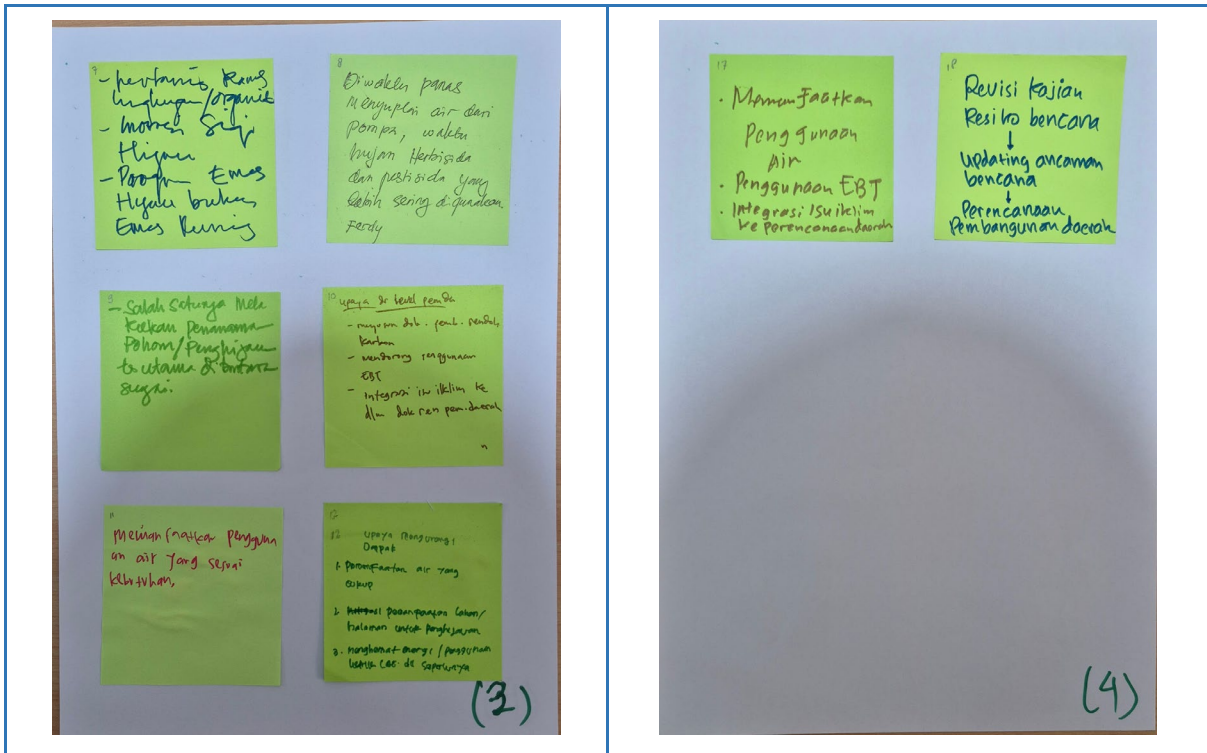 7
- pertanis Ramg
lingkungan/organik
- inovasi Sigi
Hijau
- Program Emas
Hijau bukan
Emas Kuning
8
Diwaktu panas
Menyuplai air dari
Pompa, waktu
hujan Herbisida
dan pestisida yang
lebih sering digunakan
Ferdy
9
- Salah satunya Mela
kukan Penanaman
Pohon/Penghijauan
terutama di bantaran
sungai.
10
upaya di level pemda
- menyusun dok. pemb. rendah
karbon
- mendorong penggunaan
EBT
- Integrasi isu iklim ke
dlm dok ren pem.daerah
11
Memanfaatkan pengguna
an air yang sesuai
kebutuhan,
12
upaya mengurangi
Dampak
1. Pemanfaatan air yang
cukup
2. pemanfaatan lahan/
halaman untuk penghijauan
3. menghemat energi/penggunaan
listrik
(3)
17
• Memanfaatkan
Penggunaan
Air
• Penggunaan EBT
• Integrasi Isu iklim
ke perencanaan daerah
18
Revisi Kajian
Resiko bencana
↓
Updating ancaman
bencana
↓
Perencanaan
Pembangunan daerah
(4)